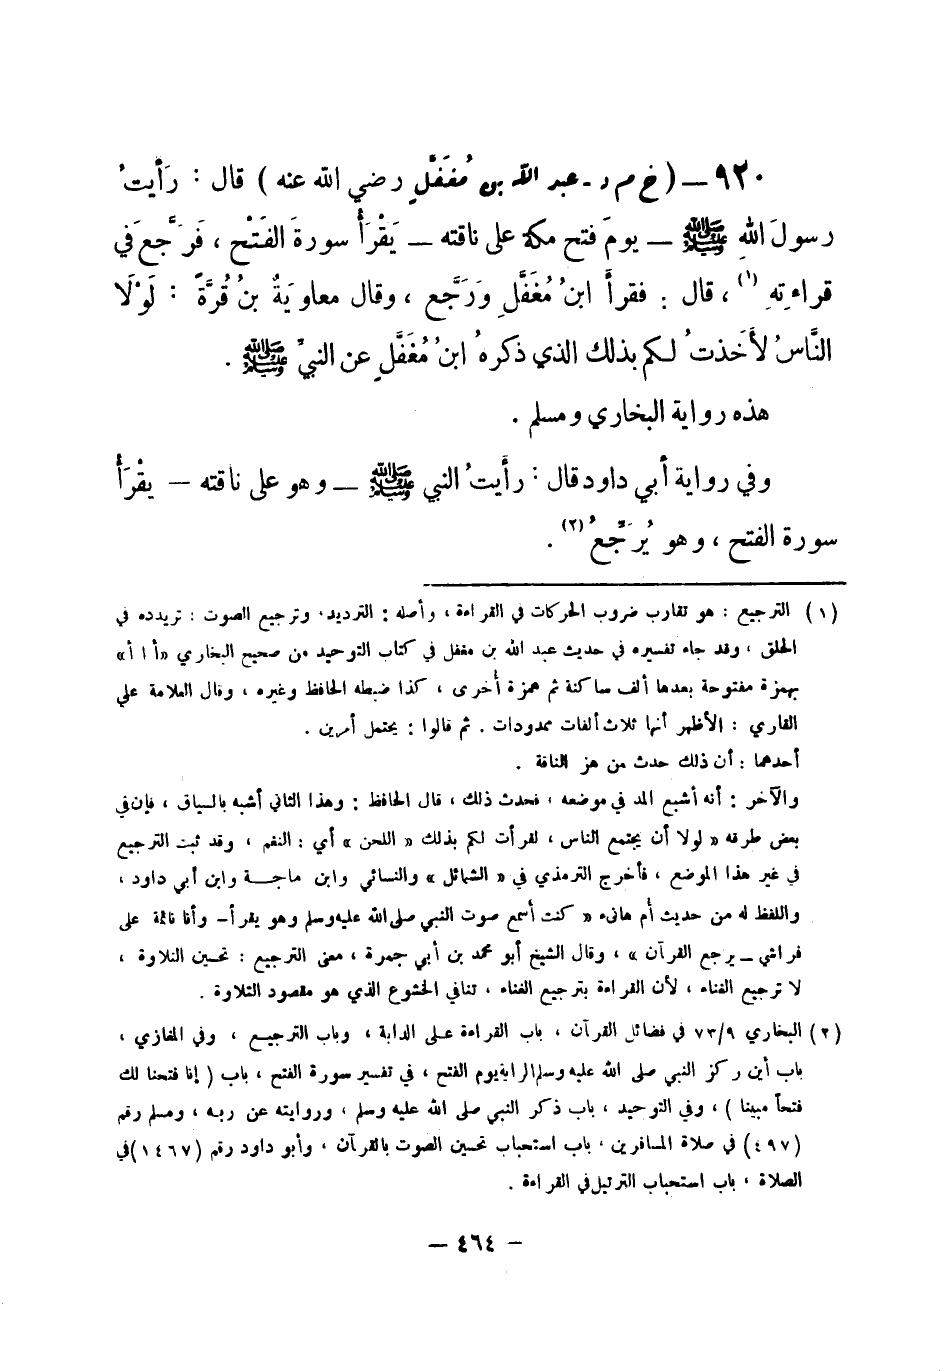 ٩٢٠ – ( خ م د - عبد الله بن مُغَفَّلٍ رضي الله عنه ) قال : رَأَيتُ
رسولَ اللهِ ﷺ – يومَ فتح مكة على ناقته – يَقْرَأُ سورةَ الفَتْحِ ، فَرَجَّعَ في
قراءتِه (١) ، قال : فقرأَ ابنُ مُغَفَّلٍ ورَجَّع ، وقال معاويَةُ بنُ قُرَّةَ : لَوْلَا
النَّاسُ لأَخذتُ لكم بذلك الذي ذكرهُ ابنُ مُغَفَّلٍ عن النبيِّ ﷺ .
هذه رواية البخاري ومسلم .
وفي رواية أبي داود قال : رأيتُ النبي ﷺ – وهو على ناقته – يقْرَأُ
سورة الفتح ، وهو يُرَجِّعُ (٢) .
(١) الترجيع : هو تقارب ضروب الحركات في القراءة ، وأصله : الترديد ، وترجيع الصوت : ترديده في
الحلق ، وقد جاء تفسيره في حديث عبد الله بن مغفل في كتاب التوحيد من صحيح البخاري «أ ا أ»
بهمزة مفتوحة بعدها ألف ساكنة ثم همزة أخرى ، كذا ضبطه الحافظ وغيره ، وقال العلامة علي
القاري : الأظهر أنها ثلاث ألفات ممدودات . ثم قالوا : يحتمل أمرين .
أحدهما : أن ذلك حدث من هز الناقة .
والآخر : أنه أشبع المد في موضعه ، فحدث ذلك ، قال الحافظ : وهذا الثاني أشبه بالسياق ، فإن في
بعض طرقه « لولا أن يجتمع الناس ، لقرأت لكم بذلك « اللحن » أي : النغم ، وقد ثبت الترجيع
في غير هذا الموضع ، فأخرج الترمذي في « الشمائل » والنسائي وابن ماجة وابن أبي داود ،
واللفظ له من حديث أم هانىء « كنت أسمع صوت النبي صلى الله عليه وسلم وهو يقرأ - وأنا نائمة على
فراشي – يرجع القرآن » ، وقال الشيخ أبو محمد بن أبي جمرة ، معنى الترجيع : تحسين التلاوة ،
لا ترجيع الغناء ، لأن القراءة بترجيع الغناء ، تنافي الخشوع الذي هو مقصود التلاوة .
(٢) البخاري ٧٣/٩ في فضائل القرآن ، باب القراءة على الدابة ، وباب الترجيع ، وفي المغازي ،
باب أين ركز النبي صلى الله عليه وسلم الراية يوم الفتح ، في تفسير سورة الفتح ، باب ( إنا فتحنا لك
فتحاً مبينا ) ، وفي التوحيد ، باب ذكر النبي صلى الله عليه وسلم ، وروايته عن ربه ، ومسلم رقم
(٤٩٧) في صلاة المسافرين ، باب استحباب تحسين الصوت بالقرآن ، وأبو داود رقم (١٤٦٧) في
الصلاة ، باب استحباب الترتيل في القراءة .
– ٤٦٤ –